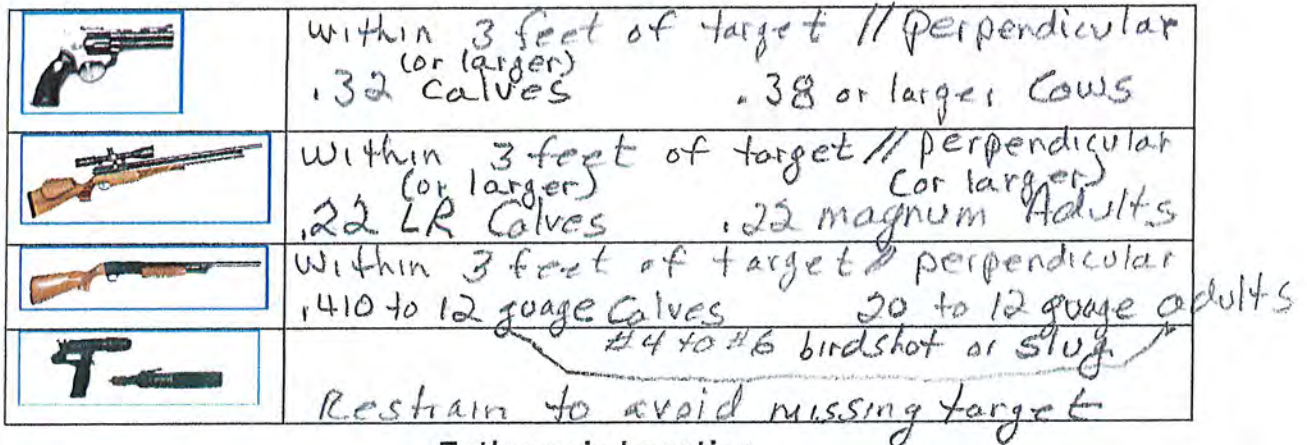 within 3 feet of target // perpendicular
(or larger)
.32 Calves .38 or larger Cows
Within 3 feet of target // perpendicular
(or larger) (or larger)
.22 LR Calves .22 magnum Adults
Within 3 feet of target // perpendicular
.410 to 12 guage Calves 20 to 12 guage adults
#4 to #6 birdshot or slug
Restrain to avoid missing target